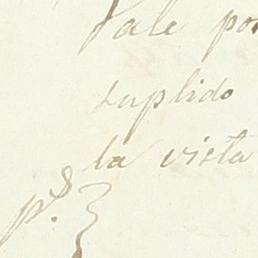 Vale por
suplido
la vista
p.r